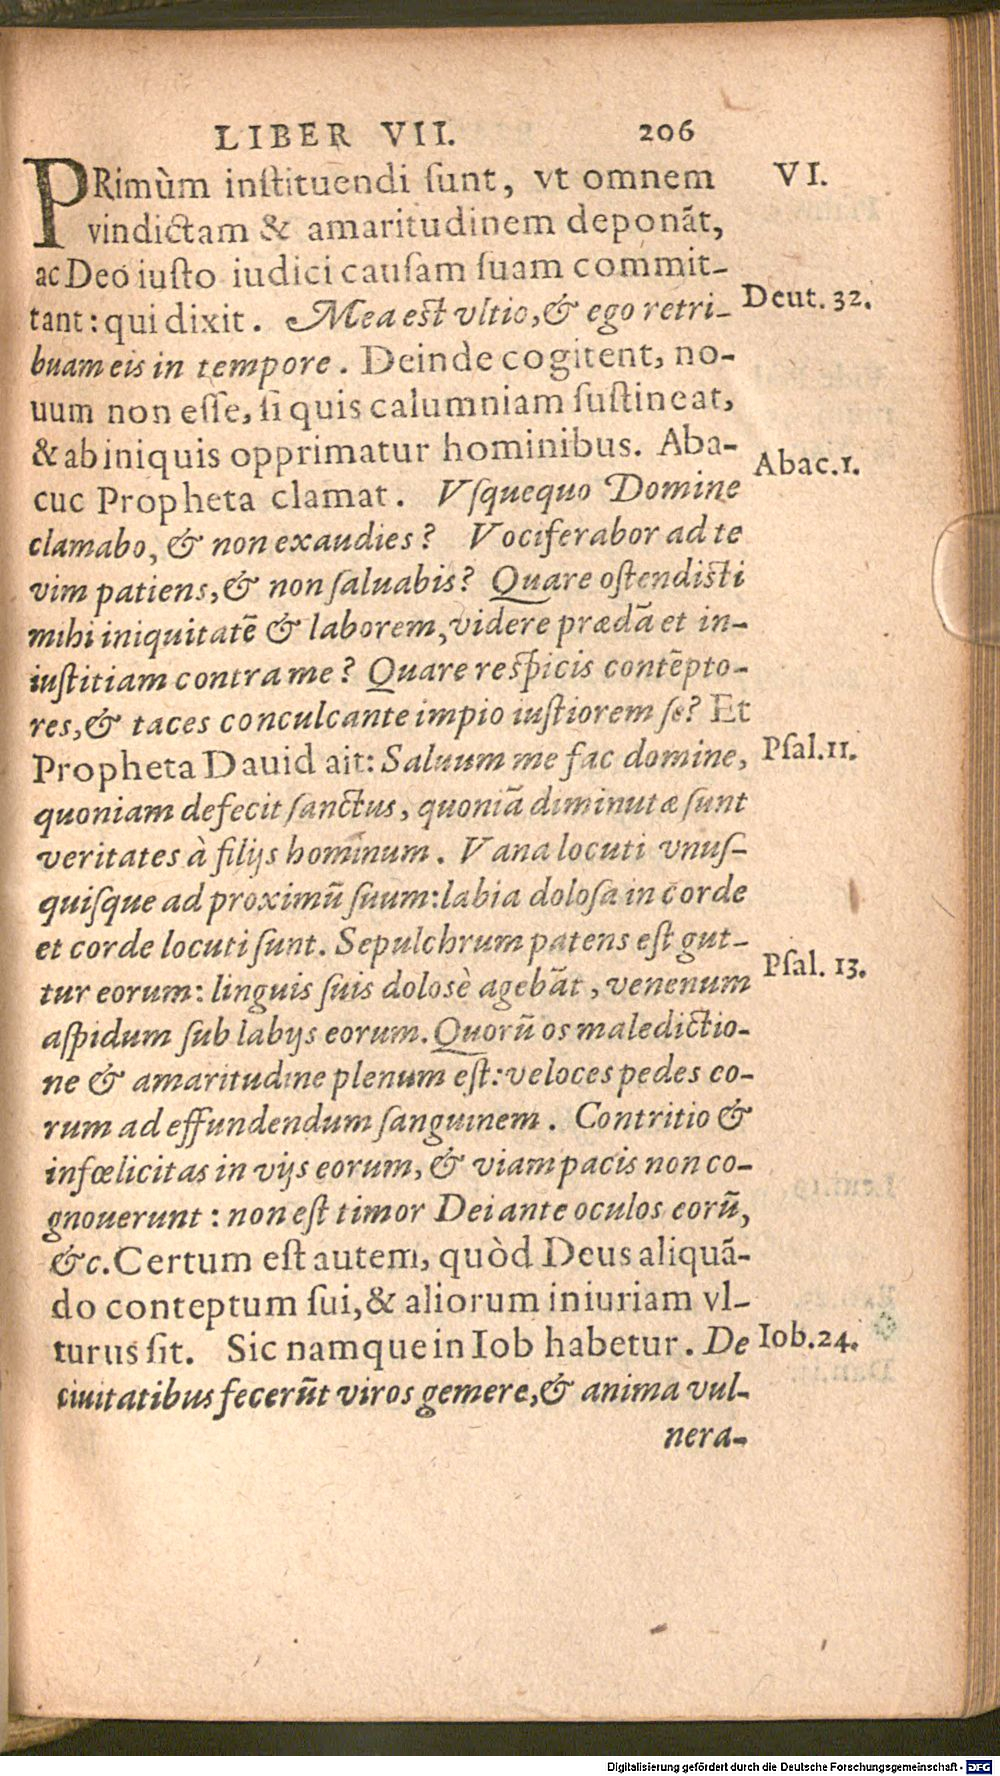 LIBER VII. 206
PRimùm instituendi sunt, vt omnem
VI.
vindictam & amaritudinem deponãt,
ac Deo iusto iudici causam suam commit-
Deut. 32.
tant: qui dixit. Mea est vltio, & ego retri-
buam eis in tempore. Deinde cogitent, no-
uum non esse, si quis calumniam sustineat,
& ab iniquis opprimatur hominibus. Aba-
Abac.1.
cuc Propheta clamat. Vsquequo Domine
clamabo, & non exaudies? Vociferabor ad te
vim patiens, & non saluabis? Quare ostendisti
mihi iniquitatẽ & laborem, videre prædã et in-
iustitiam contra me? Quare respicis contẽpto-
res, & taces conculcante impio iustiorem se? Et
Propheta Dauid ait: Saluum me fac domine,
Psal.11.
quoniam defecit sanctus, quoniã diminutæ sunt
veritates à filijs hominum. Vana locuti vnus-
quisque ad proximũ suum: labia dolosa in corde
et corde locuti sunt. Sepulchrum patens est gut-
Psal. 13.
tur eorum: linguis suis dolosè agebãt, venenum
aspidum sub labijs eorum. Quorũ os maledictio-
ne & amaritudine plenum est: veloces pedes eo-
rum ad effundendum sanguinem. Contritio &
infœlicitas in vijs eorum, & viam pacis non co-
gnouerunt: non est timor Dei ante oculos eorũ,
&c. Certum est autem, quòd Deus aliquã-
do conteptum sui, & aliorum iniuriam vl-
turus sit. Sic namque in Iob habetur. De
Iob.24.
ciuitatibus fecerũt viros gemere, & anima vul-
nera-
Digitalisierung gefördert durch die Deutsche Forschungsgemeinschaft - DFG